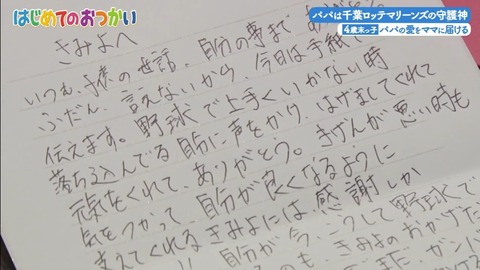 はじめてのおつかい
パパは千葉ロッテマリーンズの守護神
4歳末っ子 パパの愛をママに届ける
きみよへ
いつも、子供の世話、自分の事まで
ふだん、言えないから、今日は手紙で
伝えます。野球で上手くいかない時
落ち込んでる自分に声をかけ、はげましてくれて
元気をくれて、ありがとう。きげんが悪い時も
気をつかって、自分が良くなるように
支えてくれるきみよには感謝しか
自分が今、こうして野球で
きみよのおかげだ
ガンバ